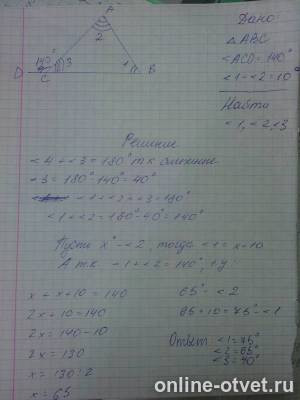 A
2
140°
3
1
D
C
B
Дано:
△ ABC
<ACD = 140°
<1 - <2 = 10°
Найти
<1, <2, <3
Решение
<4 + <3 = 180° т.к смежные
<3 = 180° - 140° = 40°
<1 + <2 + <3 = 180°
<1 + <2 = 180° - 40° = 140°
Пусть x° - <2, тогда <1 = x + 10
А т.к <1 + <2 = 140°, 
x + x + 10 = 140
2x + 10 = 140
2x = 140 - 10
2x = 130
x = 130 : 2
x = 65
65° - <2
65 + 10 = 75° - <1
Ответ <1 = 75°
<2 = 65°
<3 = 40°
online-otvet.ru